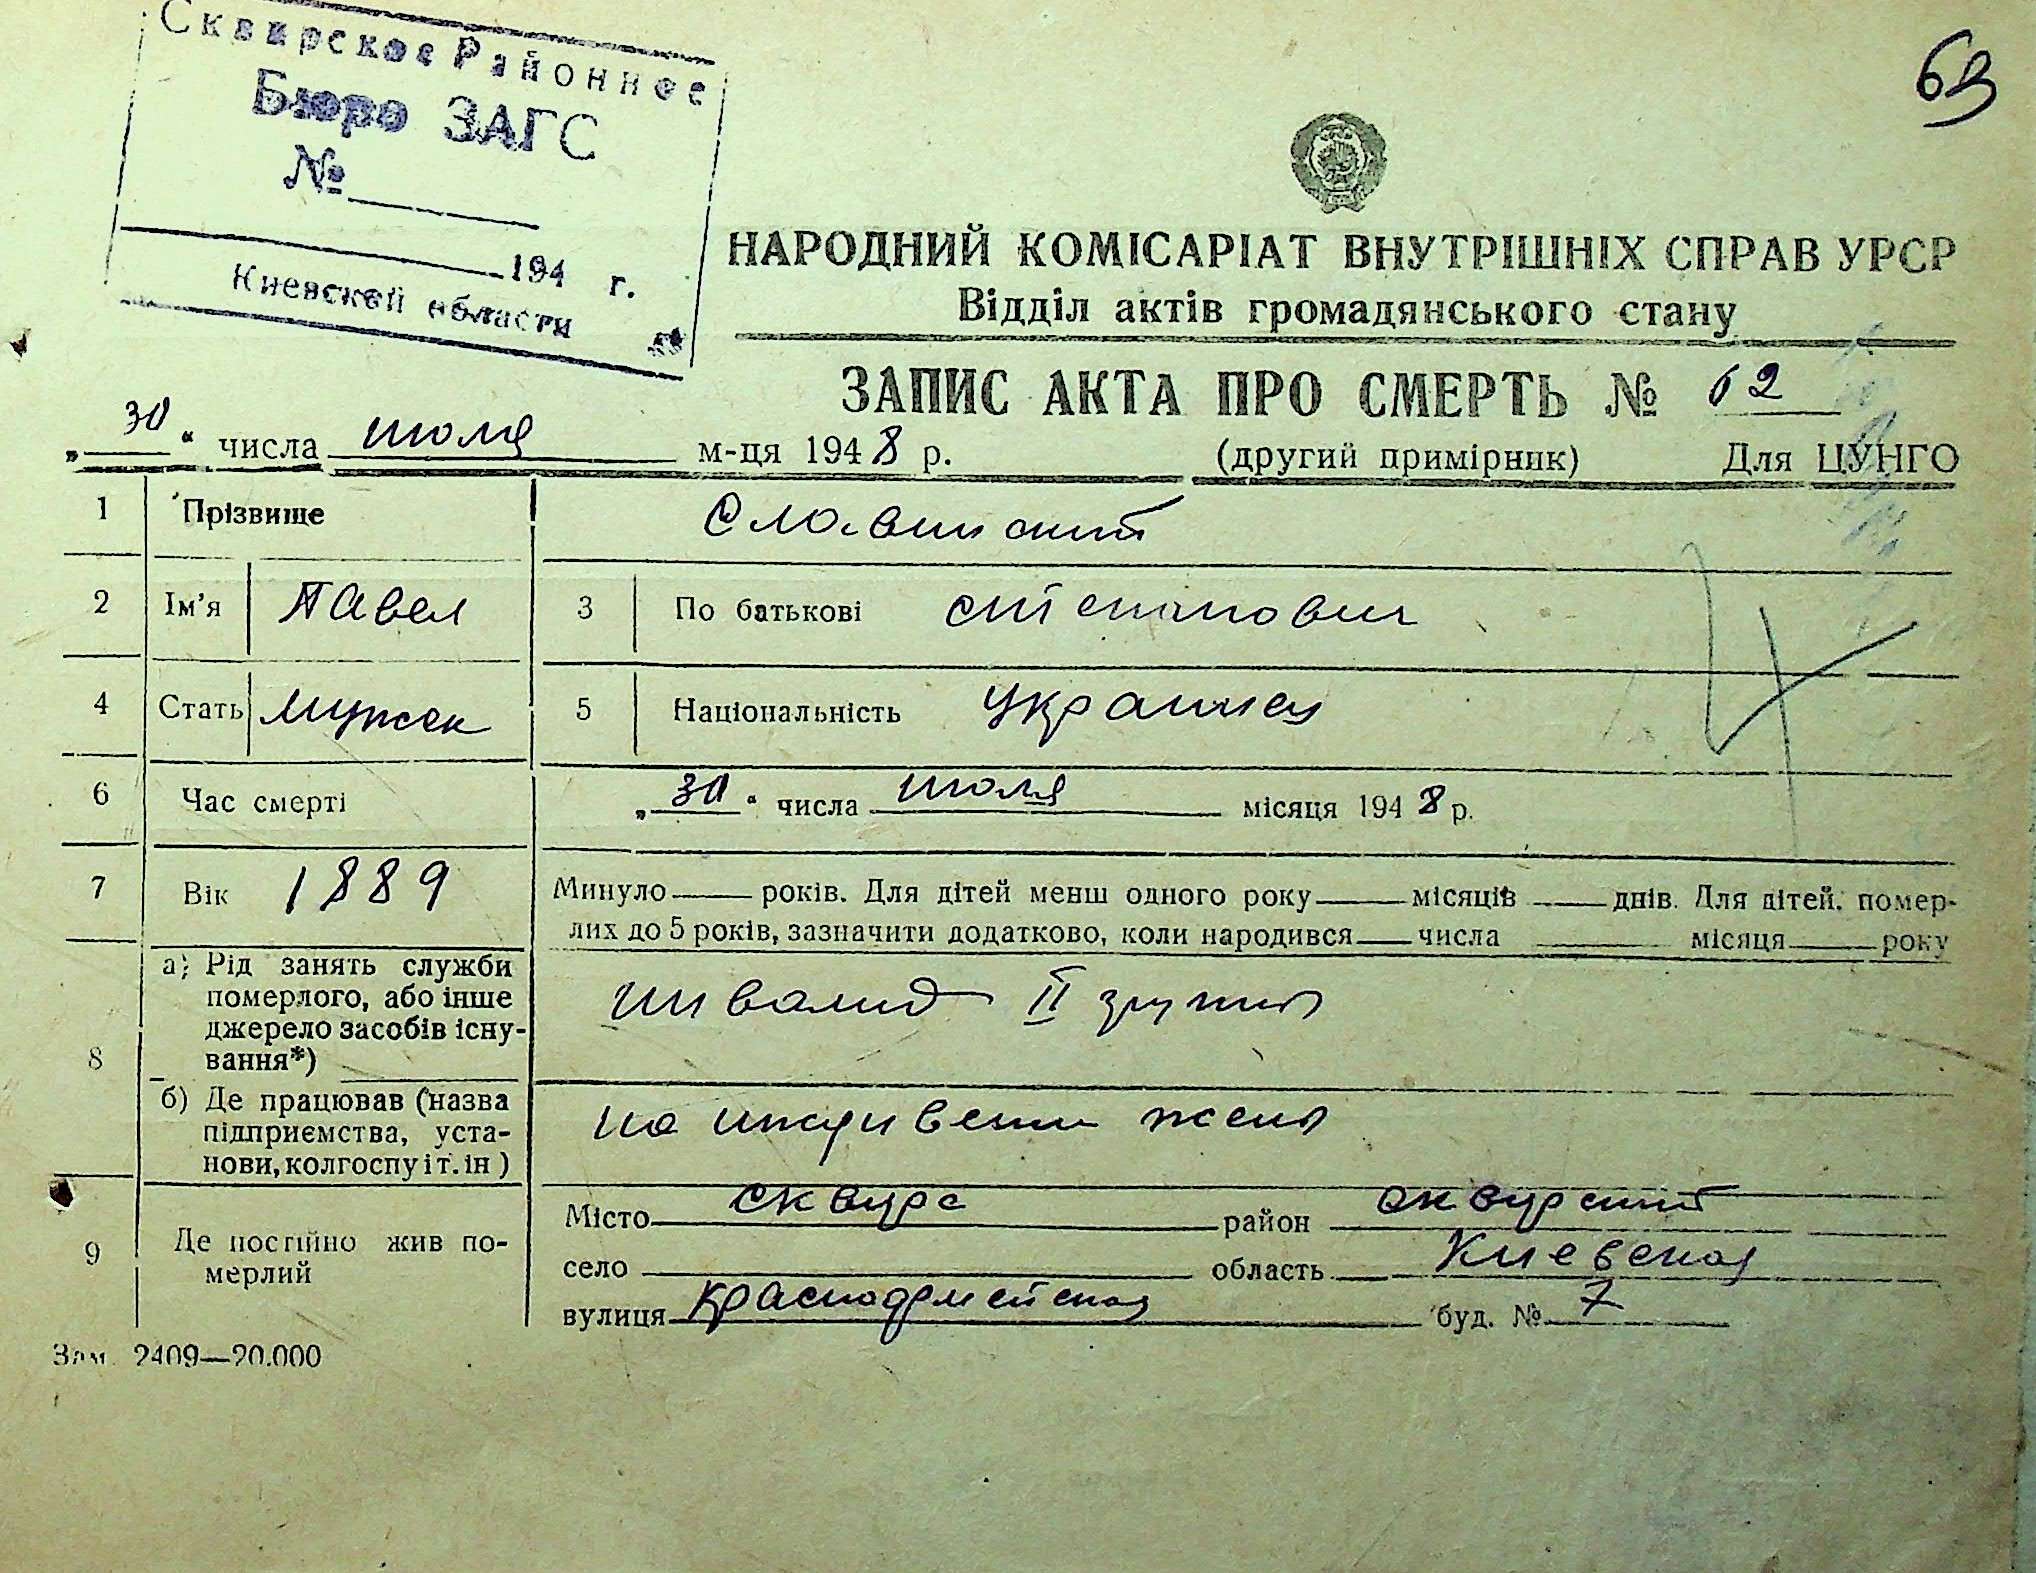 Сквирское Районное
Бюро ЗАГС
№
194 г.
Киевской области
63
НАРОДНИЙ КОМІСАРІАТ ВНУТРІШНІХ СПРАВ УРСР
Відділ актів громадянського стану
ЗАПИС АКТА ПРО СМЕРТЬ № 62
„30“ числа июля м-ця 1948 р. (другий примірник) Для ЦУНГО
1 Прізвище Славинский
2 Ім’я Павел 3 По батькові Степанович
4 Стать мужск 5 Національність Украинец
6 Час смерті „30“ числа июля місяця 1948 р.
7 Вік 1889 Минуло років. Для дітей менш одного року місяців днів. Для дітей, помер-
лих до 5 років, зазначити додатково, коли народився числа місяця року
8 а) Рід занять служби
померлого, або інше
джерело засобів існу-
вання*)
инвалид II групы
б) Де працював (назва
підприємства, уста-
нови, колгоспу і т. ін)
на иждивении жены
9 Де постійно жив по-
мерлий
Місто Сквира район Сквирский
село область Киевская
вулиця Красноармейская буд. № 7
Зам. 2409—20.000